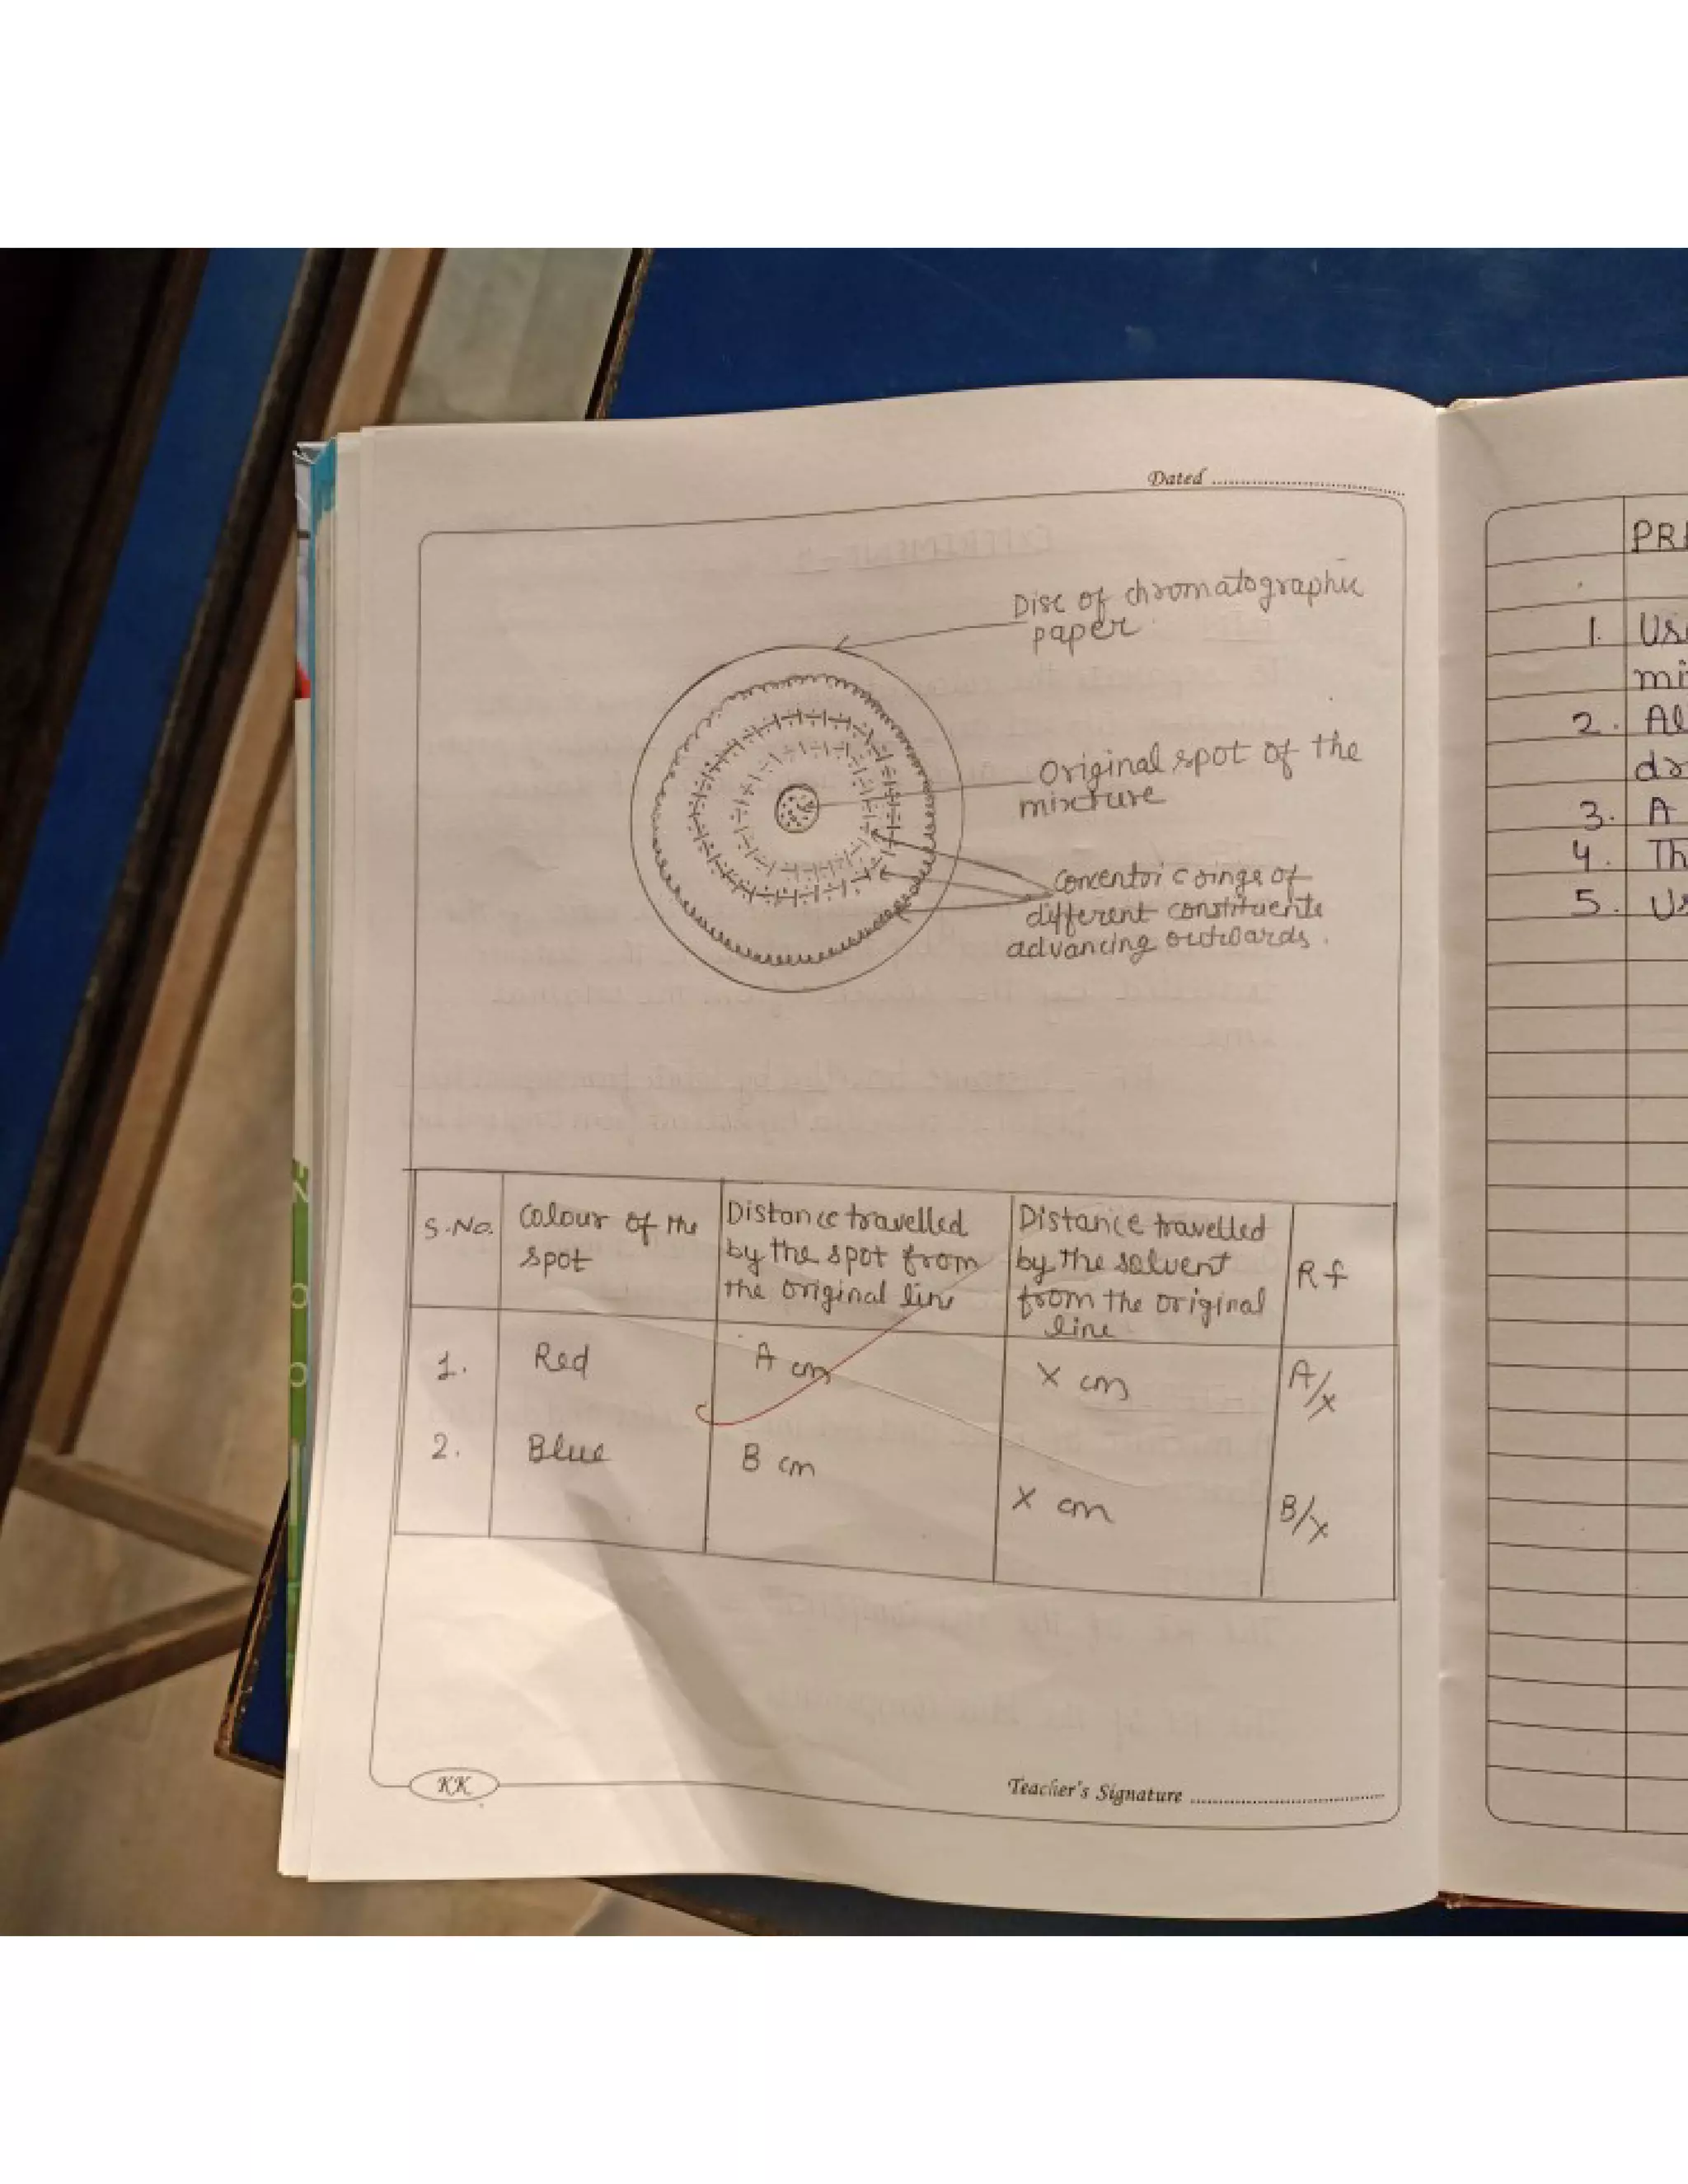 Dated
Disc of chromatographic
paper
Original spot of the
mixture
Concentric rings of
different constituents
advancing outwards.
S.No. Colour of the spot Distance travelled by the spot from the original line Distance travelled by the solvent from the original line Rf
1. Red A cm X cm A/x
2. Blue B cm X cm B/x
KK
Teacher's Signature
1.
2.
3. A
4.
5.